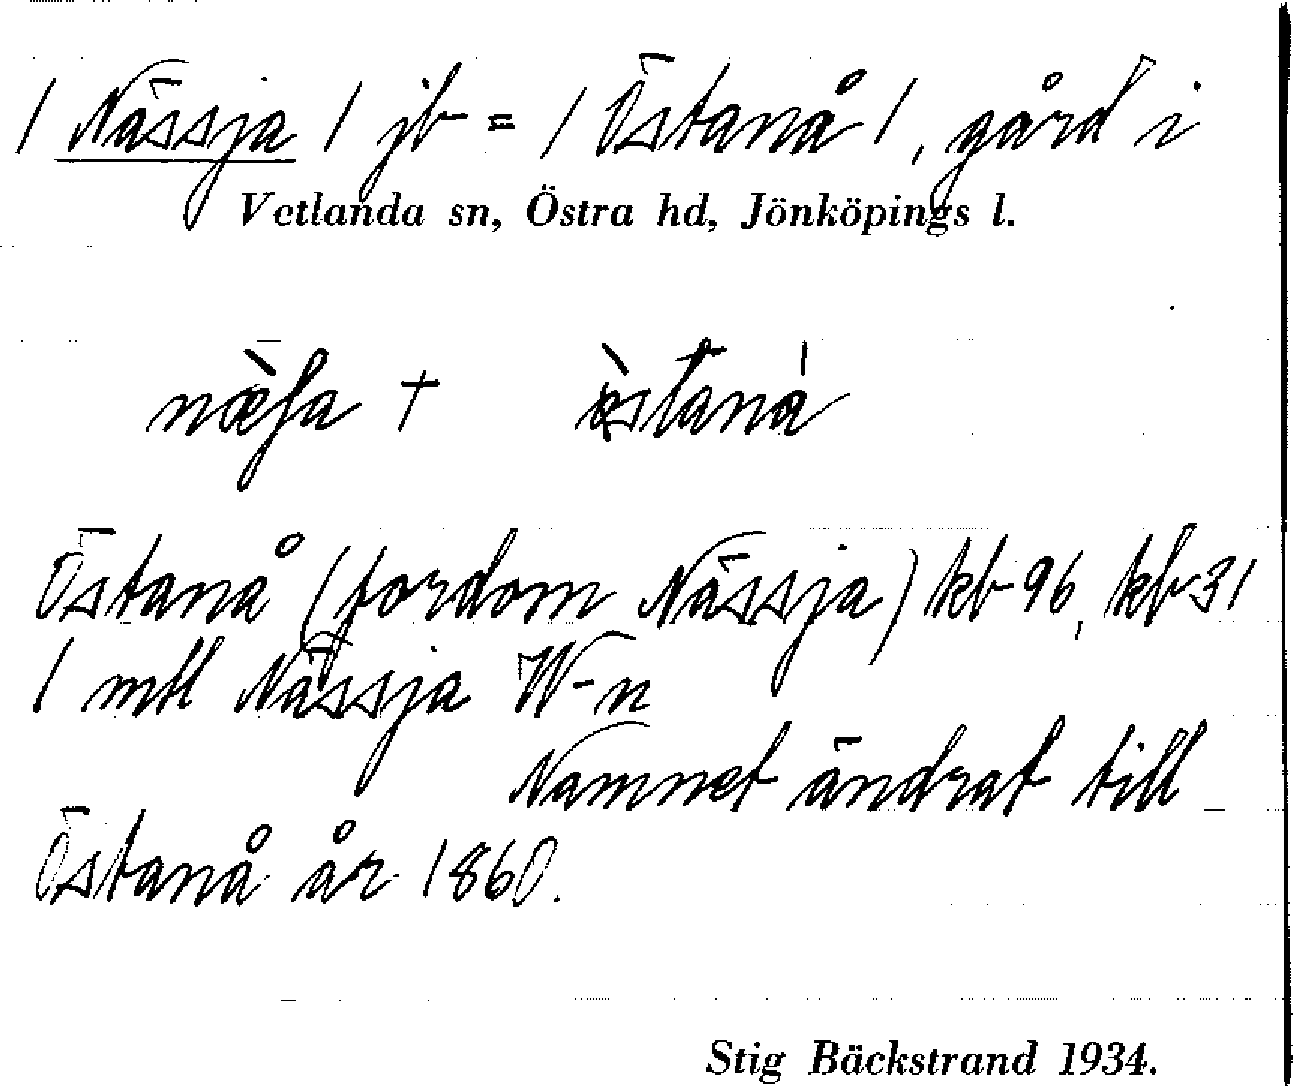 / Nässja / jb = / Östanå /, gård i
Vetlanda sn, Östra hd, Jönköpings l.
Östanå (fordom Nässja) kb 96, kb 31
1 mtl Nässja W-n
Namnet ändrat till
Östanå år 1860.
Stig Bäckstrand 1934.